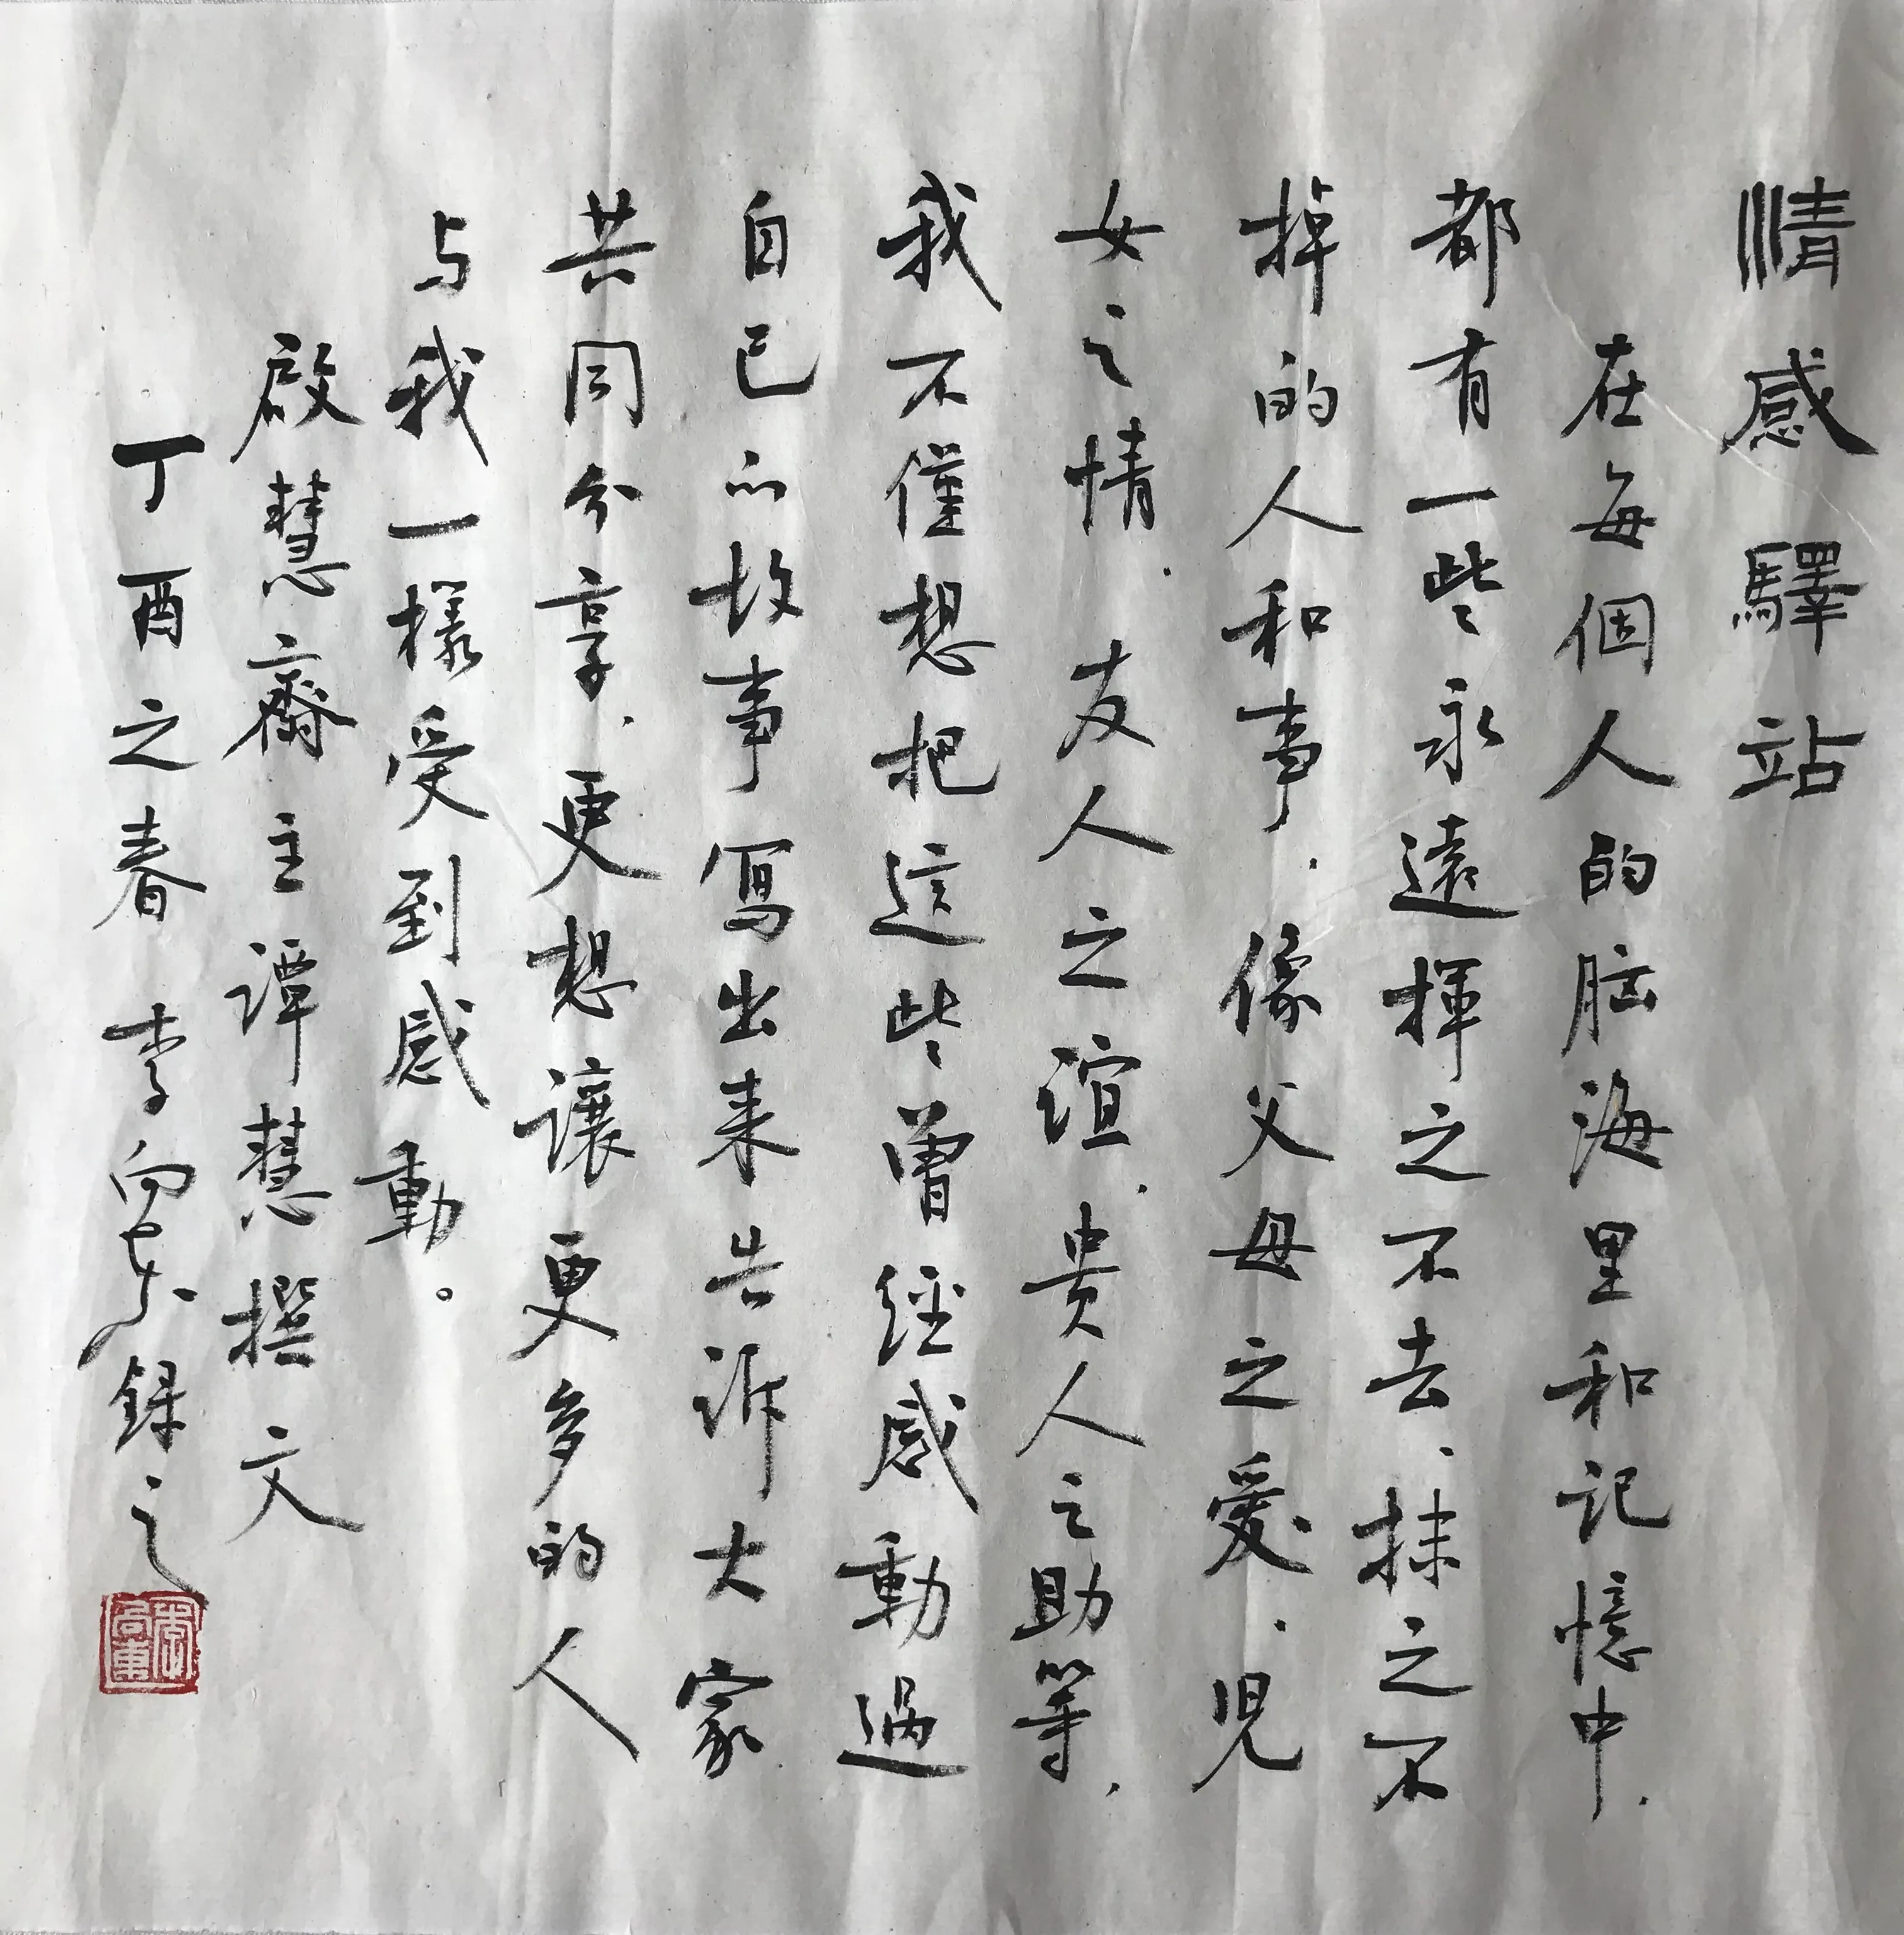 情感驛站
在每個人的脑海里和记憶中.
都有一些永遠揮之不去、抹之不
掉的人和事.像父母之爱.児
女之情.友人之谊.贵人之助等.
我不僅想把這些曾经感動過
自己的故事寫出来告诉大家
共同分享.更想讓更多的人
与我一樣受到感動。
啟慧齋主谭慧撰文
丁酉之春 李向东録之
李向東